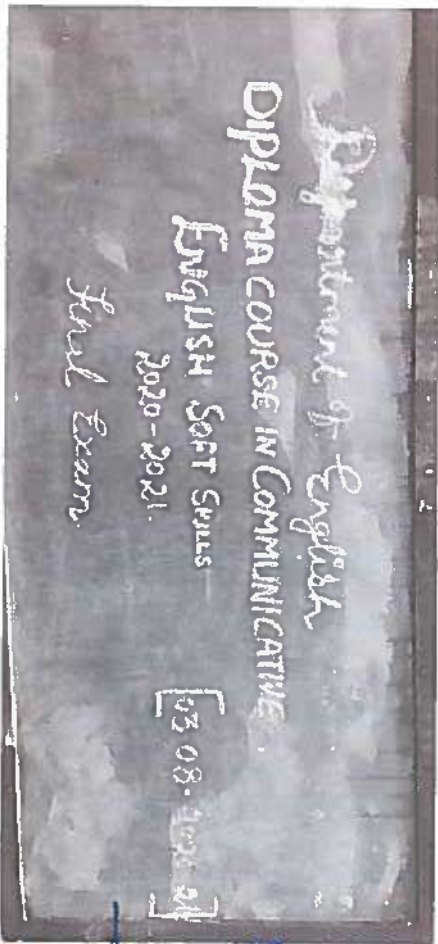 Department of English
DIPLOMA COURSE IN COMMUNICATIVE.
ENGLISH SOFT SKILLS
2020-2021.
Final Exam.
[03.08.